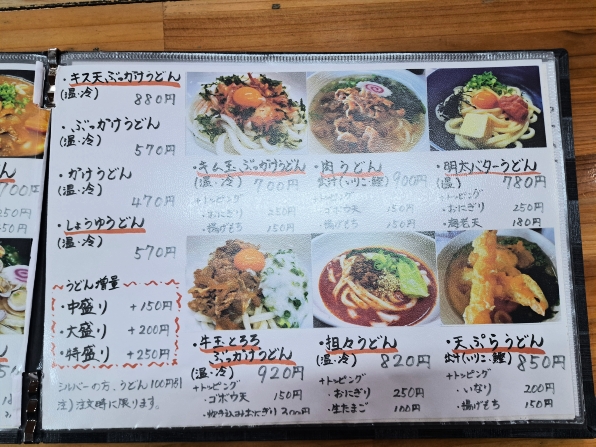 ・キス天ぶっかけうどん
(温・冷)
880円
・ぶっかけうどん
(温・冷)
570円
・かけうどん
(温・冷)
470円
・しょうゆうどん
(温・冷)
570円
うどん増量
・中盛り +150円
・大盛り +200円
・特盛り +250円
シルバーの方、うどん100円引
注)注文時に限ります。
・キム玉ぶっかけうどん
(温・冷) 700円
+トッピング
・おにぎり 250円
・揚げもち 150円
・肉うどん
出汁(いりこ・鰹) 900円
+トッピング
・ゴボウ天 150円
・揚げもち 150円
・明太バターうどん
(温) 780円
+トッピング
・おにぎり 250円
・海老天 180円
・牛玉とろろ
ぶっかけうどん
(温・冷) 920円
+トッピング
・ゴボウ天 150円
・担々うどん
(温・冷) 820円
+トッピング
・おにぎり 250円
・生たまご 100円
・天ぷらうどん
出汁(いりこ・鰹) 850円
+トッピング
・いなり 200円
・揚げもち 150円